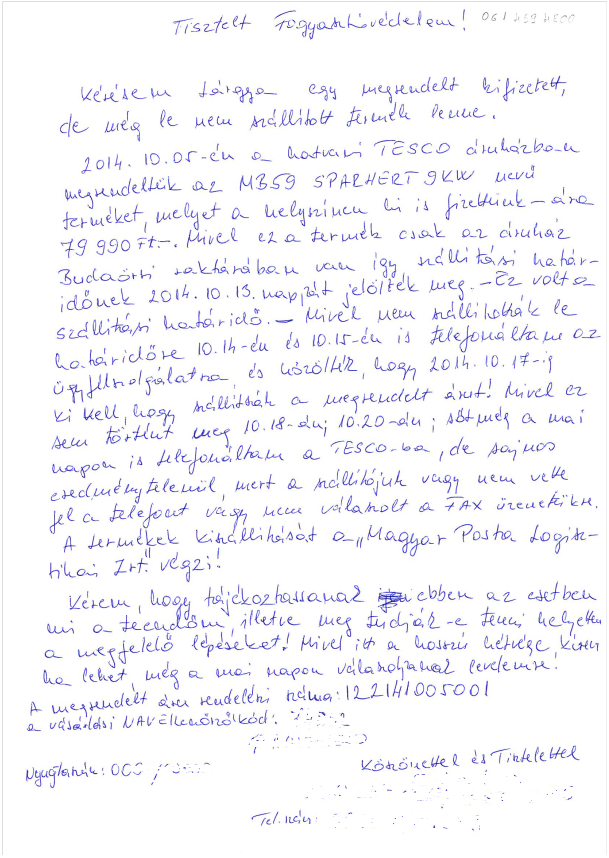 Tisztelt Fogyasztóvédelem! 061 459 4800
Kérésem tárgya egy megrendelt kifizetett,
de még le nem szállított termék lenne.
2014.10.05-én a hatvani TESCO áruházban
megrendeltük az MB59 SPARHERT 9KW nevű
terméket, melyet a helyszínen ki is fizettünk – ára
79 990 Ft-. Mivel ez a termék csak az áruház
Budaörsi raktárában van így szállítási határ-
időnek 2014.10.13. napját jelölték meg. – Ez volt a
szállítási határidő. – Mivel nem szállították le
határidőre 10.14-én és 10.15-én is telefonáltam az
ügyfélszolgálatra, és közölték, hogy 2014.10.17-ig
ki kell, hogy szállítsák a megrendelt árut! Mivel ez
sem történt meg 10.18-án; 10.20-án; sőt még a mai
napon is telefonáltam a TESCO-ba, de sajnos
eredménytelenül, mert a szállítójuk vagy nem vette
fel a telefont vagy nem válaszolt a FAX üzenetükre.
A termékek kiszállítását a „Magyar Posta Logisz-
tikai Zrt." végzi!
Kérem, hogy tájékoztassanak ebben az esetben
mi a teendőm, illetve meg tudják-e tenni helyettem
a megfelelő lépéseket! Mivel itt a hosszú hétvége, kérem
ha lehet, még a mai napon válaszoljanak levelemre!
A megrendelt áru rendelési száma: 122141005001
a vásárlási NAV Ellenőrzőkód:
Nyugtaszám: 000
Köszönettel és Tisztelettel
Tel.szám: